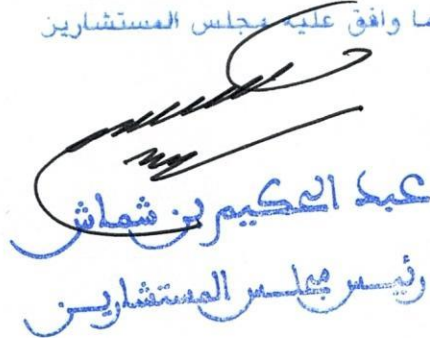 ما وافق عليه مجلس المستشارين
عبد الحكيم بن شماش
رئيس مجلس المستشارين